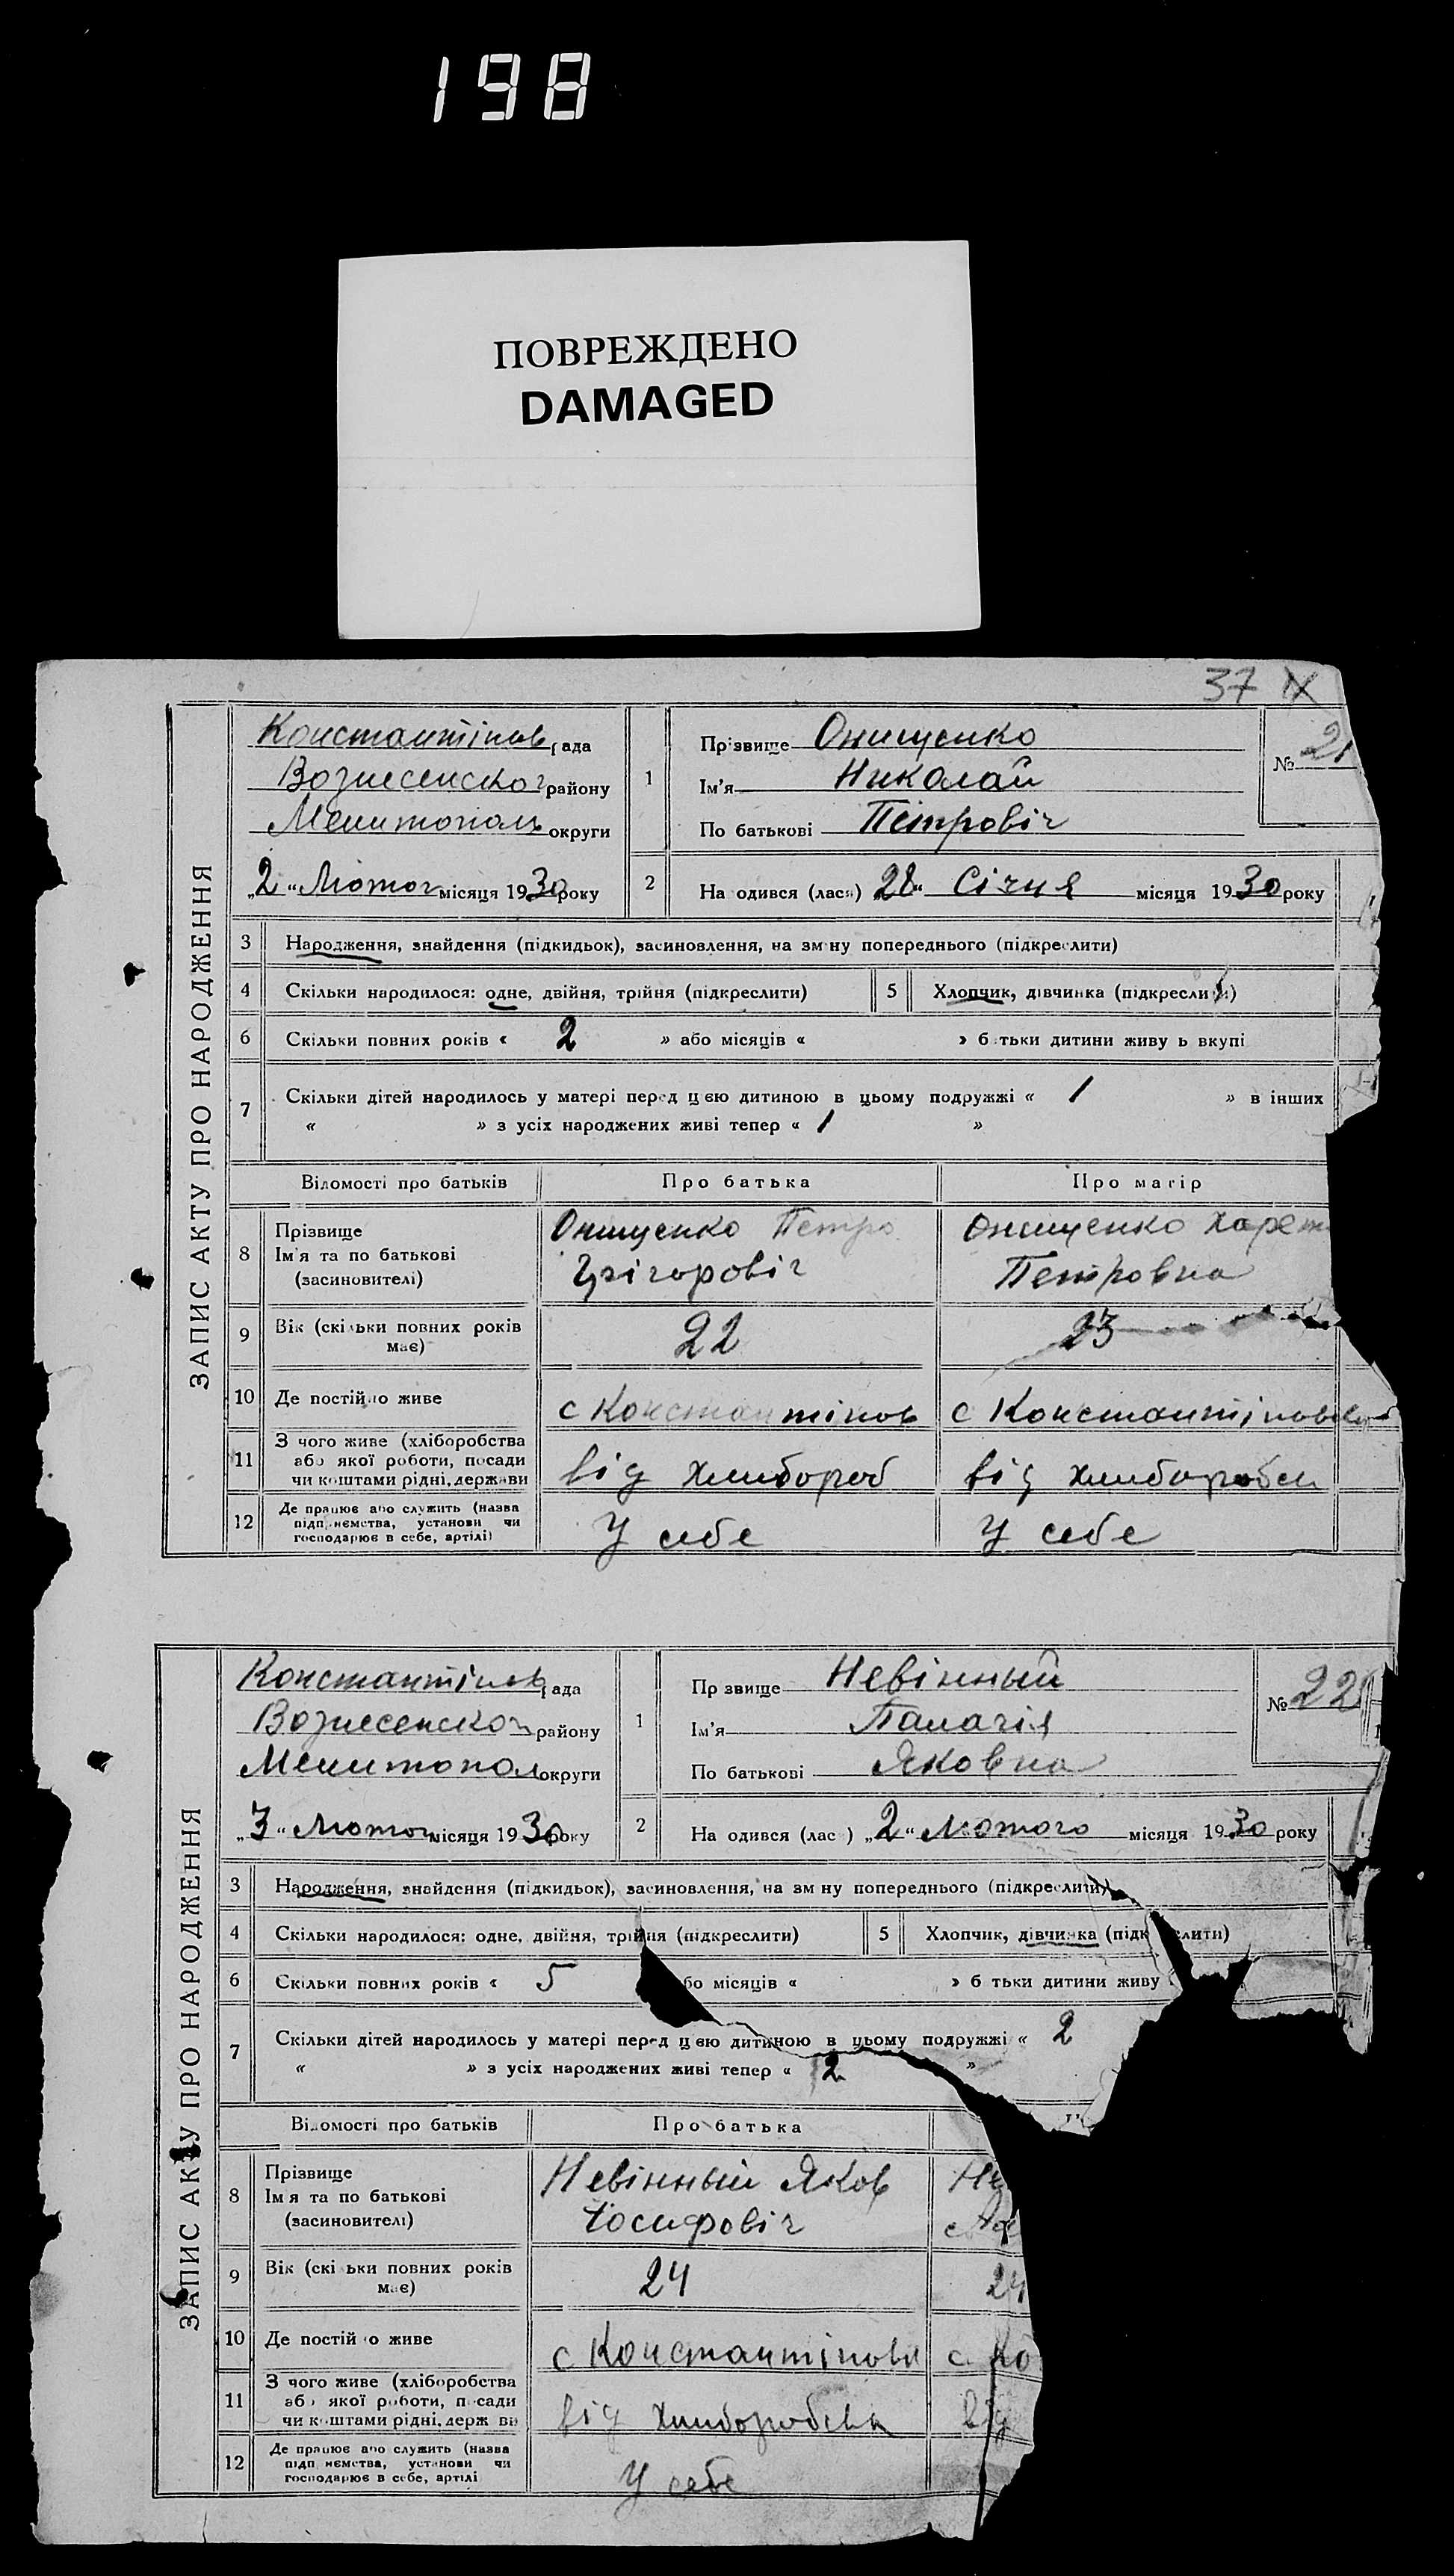 198
ПОВРЕЖДЕНО
DAMAGED
37 IX
ЗАПИС АКТУ ПРО НАРОДЖЕННЯ
Константінов рада
Вознесенског району
Мелитополь округи
„2“ Лютог місяця 1930 року
1
Прізвище Онищенко
Ім'я Николай
По батькові Петровіч
№ 21
2
На одився (лася) 28“ Січня місяця 1930 року
3 Народження, знайдення (підкидьок), засиновлення, на зміну попереднього (підкреслити)
4 Скільки народилося: одне, двійня, трійня (підкреслити) 5 Хлопчик, дівчинка (підкреслити)
6 Скільки повних років « 2 » або місяців « » б тьки дитини живу ь вкупі
7 Скільки дітей народилось у матері перед цією дитиною в цьому подружжі « 1 » в інших
« » з усіх народжених живі тепер « 1 »
Відомості про батьків Про батька Про матір
8 Прізвище
Ім'я та по батькові
(засиновителі)
Онищенко Петро
Грігоровіч
Онищенко Харет
Петровна
9 Вік (скільки повних років має) 22 23
10 Де постійно живе с Константінов с Константіновка
11 З чого живе (хліборобства
або якої роботи, посади
чи коштами рідні, держави
від хлибороб від хлиборобсв
12 Де працює або служить (назва
підприємства, установи чи
господарює в себе, артілі)
У себе У себе
ЗАПИС АКТУ ПРО НАРОДЖЕННЯ
Константінов рада
Вознесенског району
Мелитопол округи
„3“ Лютог місяця 1930 року
1
Пр звище Невінный
Ім'я Палагія
По батькові Яковна
№ 22
2
На одився (лас ) „2“ Лютого місяця 1930 року
3 Народження, знайдення (підкидьок), засиновлення, на зм ну попереднього (підкреслити)
4 Скільки народилося: одне, двійня, трійня (підкреслити) 5 Хлопчик, дівчинка (підк слити)
6 Скільки повних років « 5 бо місяців « » б тьки дитини живу
7 Скільки дітей народилось у матері перед цією дитиною в цьому подружжі « 2
« » з усіх народжених живі тепер « 2 »
Відомості про батьків Про батька
8 Прізвище
Ім'я та по батькові
(засиновителі)
Невінный Яков
Іосифовіч
Не
9 Вік (скі ьки повних років має) 24 24
10 Де постій о живе с Константіновк с Ко
11 З чого живе (хліборобства
або якої роботи, посади
чи коштами рідні, держ ви
від хлиборобства від
12 Де працює або служить (назва
підп иємства, установи чи
господарює в себе, артілі
У себе